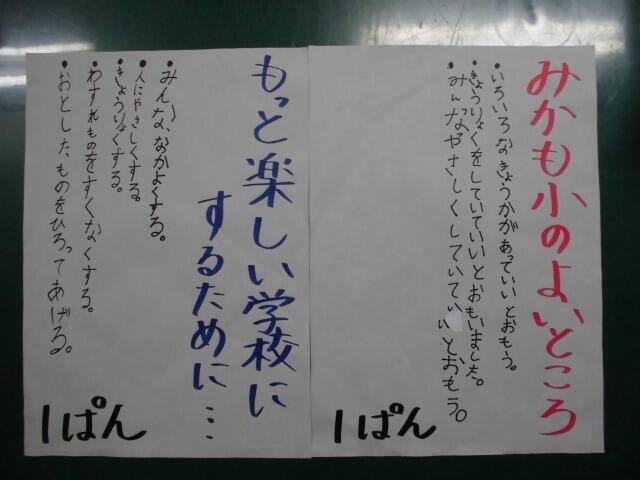 みかも小のよいところ
•いろいろなきょうかがあっていいとおもう。
•きょうりょくをしていていいとおもいました。
•みんながやさしくしていていいとおもう。
1ぱん
もっと楽しい学校に
するために…
•みんな、なかよくする。
•人にやさしくする。
•きょうりょくする。
•わすれものをすくなくする。
•おとしたものをひろってあげる。
1ぱん